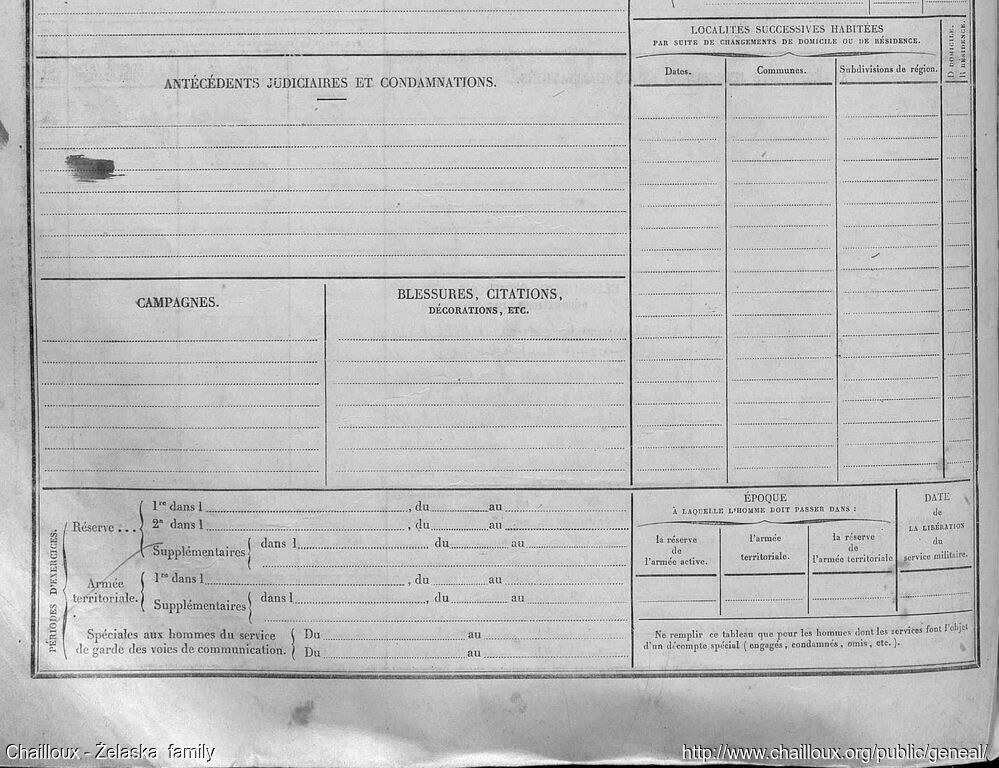 LOCALITÉS SUCCESSIVES HABITÉES
PAR SUITE DE CHANGEMENTS DE DOMICILE OU DE RÉSIDENCE.
Dates.
Communes.
Subdivisions de région.
D DOMICILE.
R RÉSIDENCE.
ANTÉCÉDENTS JUDICIAIRES ET CONDAMNATIONS.
CAMPAGNES.
BLESSURES, CITATIONS,
DÉCORATIONS, ETC.
PÉRIODES D'EXERCICES.
Réserve ...
1re dans l , du au
2e dans l , du au
Supplémentaires dans l , du au
Armée
territoriale.
1re dans l , du au
Supplémentaires dans l , du au
Spéciales aux hommes du service
de garde des voies de communication.
Du au
Du au
ÉPOQUE
À LAQUELLE L'HOMME DOIT PASSER DANS :
la réserve
de
l'armée active.
l'armée
territoriale.
la réserve
de
l'armée territoriale
DATE
de
LA LIBÉRATION
du
service militaire.
Ne remplir ce tableau que pour les hommes dont les services font l'objet
d'un décompte spécial (engagés, condamnés, omis, etc.).
Chailloux - Żelaska family
http://www.chailloux.org/public/geneal/